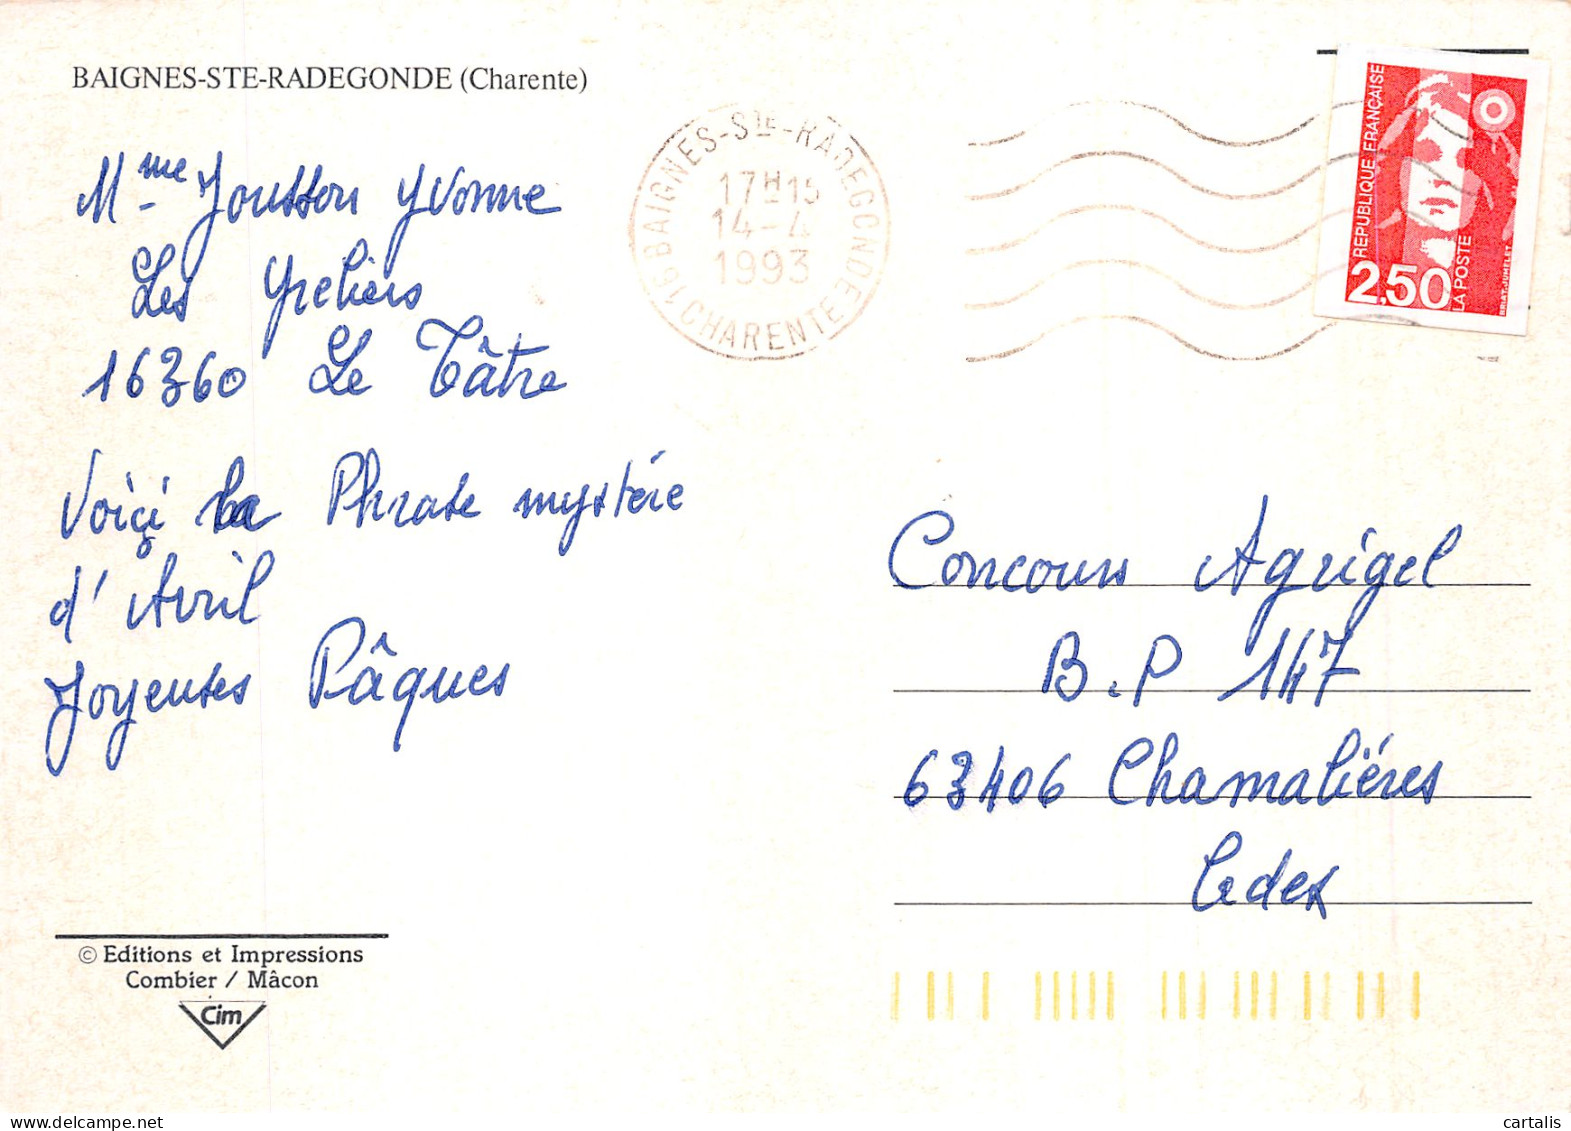 BAIGNES-STE-RADEGONDE (Charente)
Mme Jousson Yvonne
Les Greliers
16360 Le Tâtre
Voiçi la Phrase mystére
d'Avril
Joyeuses Pâques
© Editions et Impressions
Combier / Mâcon
Cim
16 BAIGNES-STE-RADEGONDE
17H15
14-4
1993
CHARENTE
REPUBLIQUE FRANÇAISE
2,50
LA POSTE
BRIAT-JUMELET
Concours Agrigel
B.P 147
63406 Chamaliéres
Cedex
cartalis